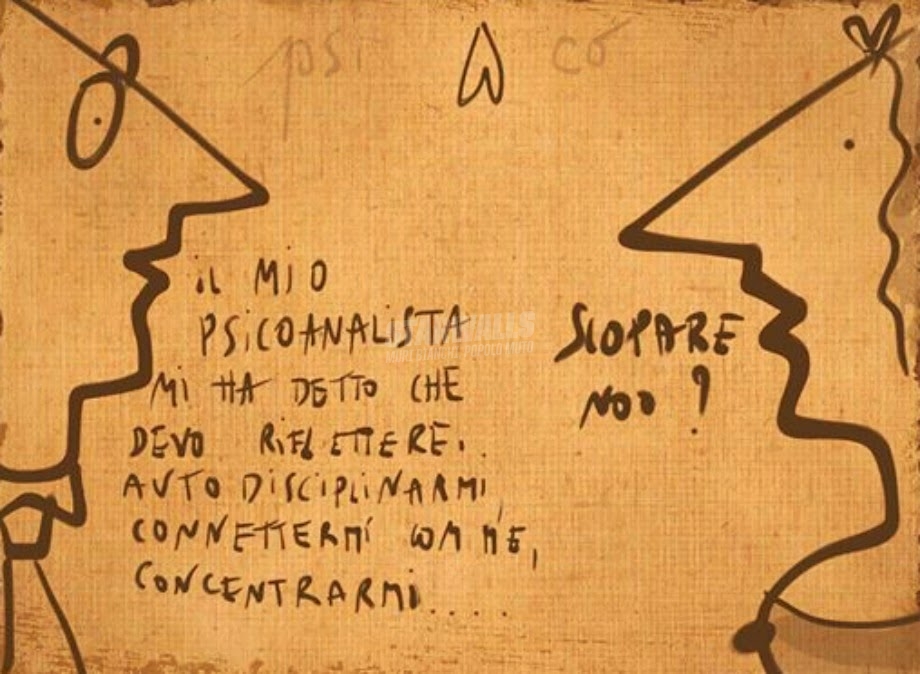 psi có
iL MiO
PSiCOANALiSTA
Mi HA DETTO CHE
DEVO RiFLETTERE.
AUTO DiSCiPLiNARMi,
CONNETTERMi CON ME,
CONCENTRARMi....
SCOPARE
NOO ?